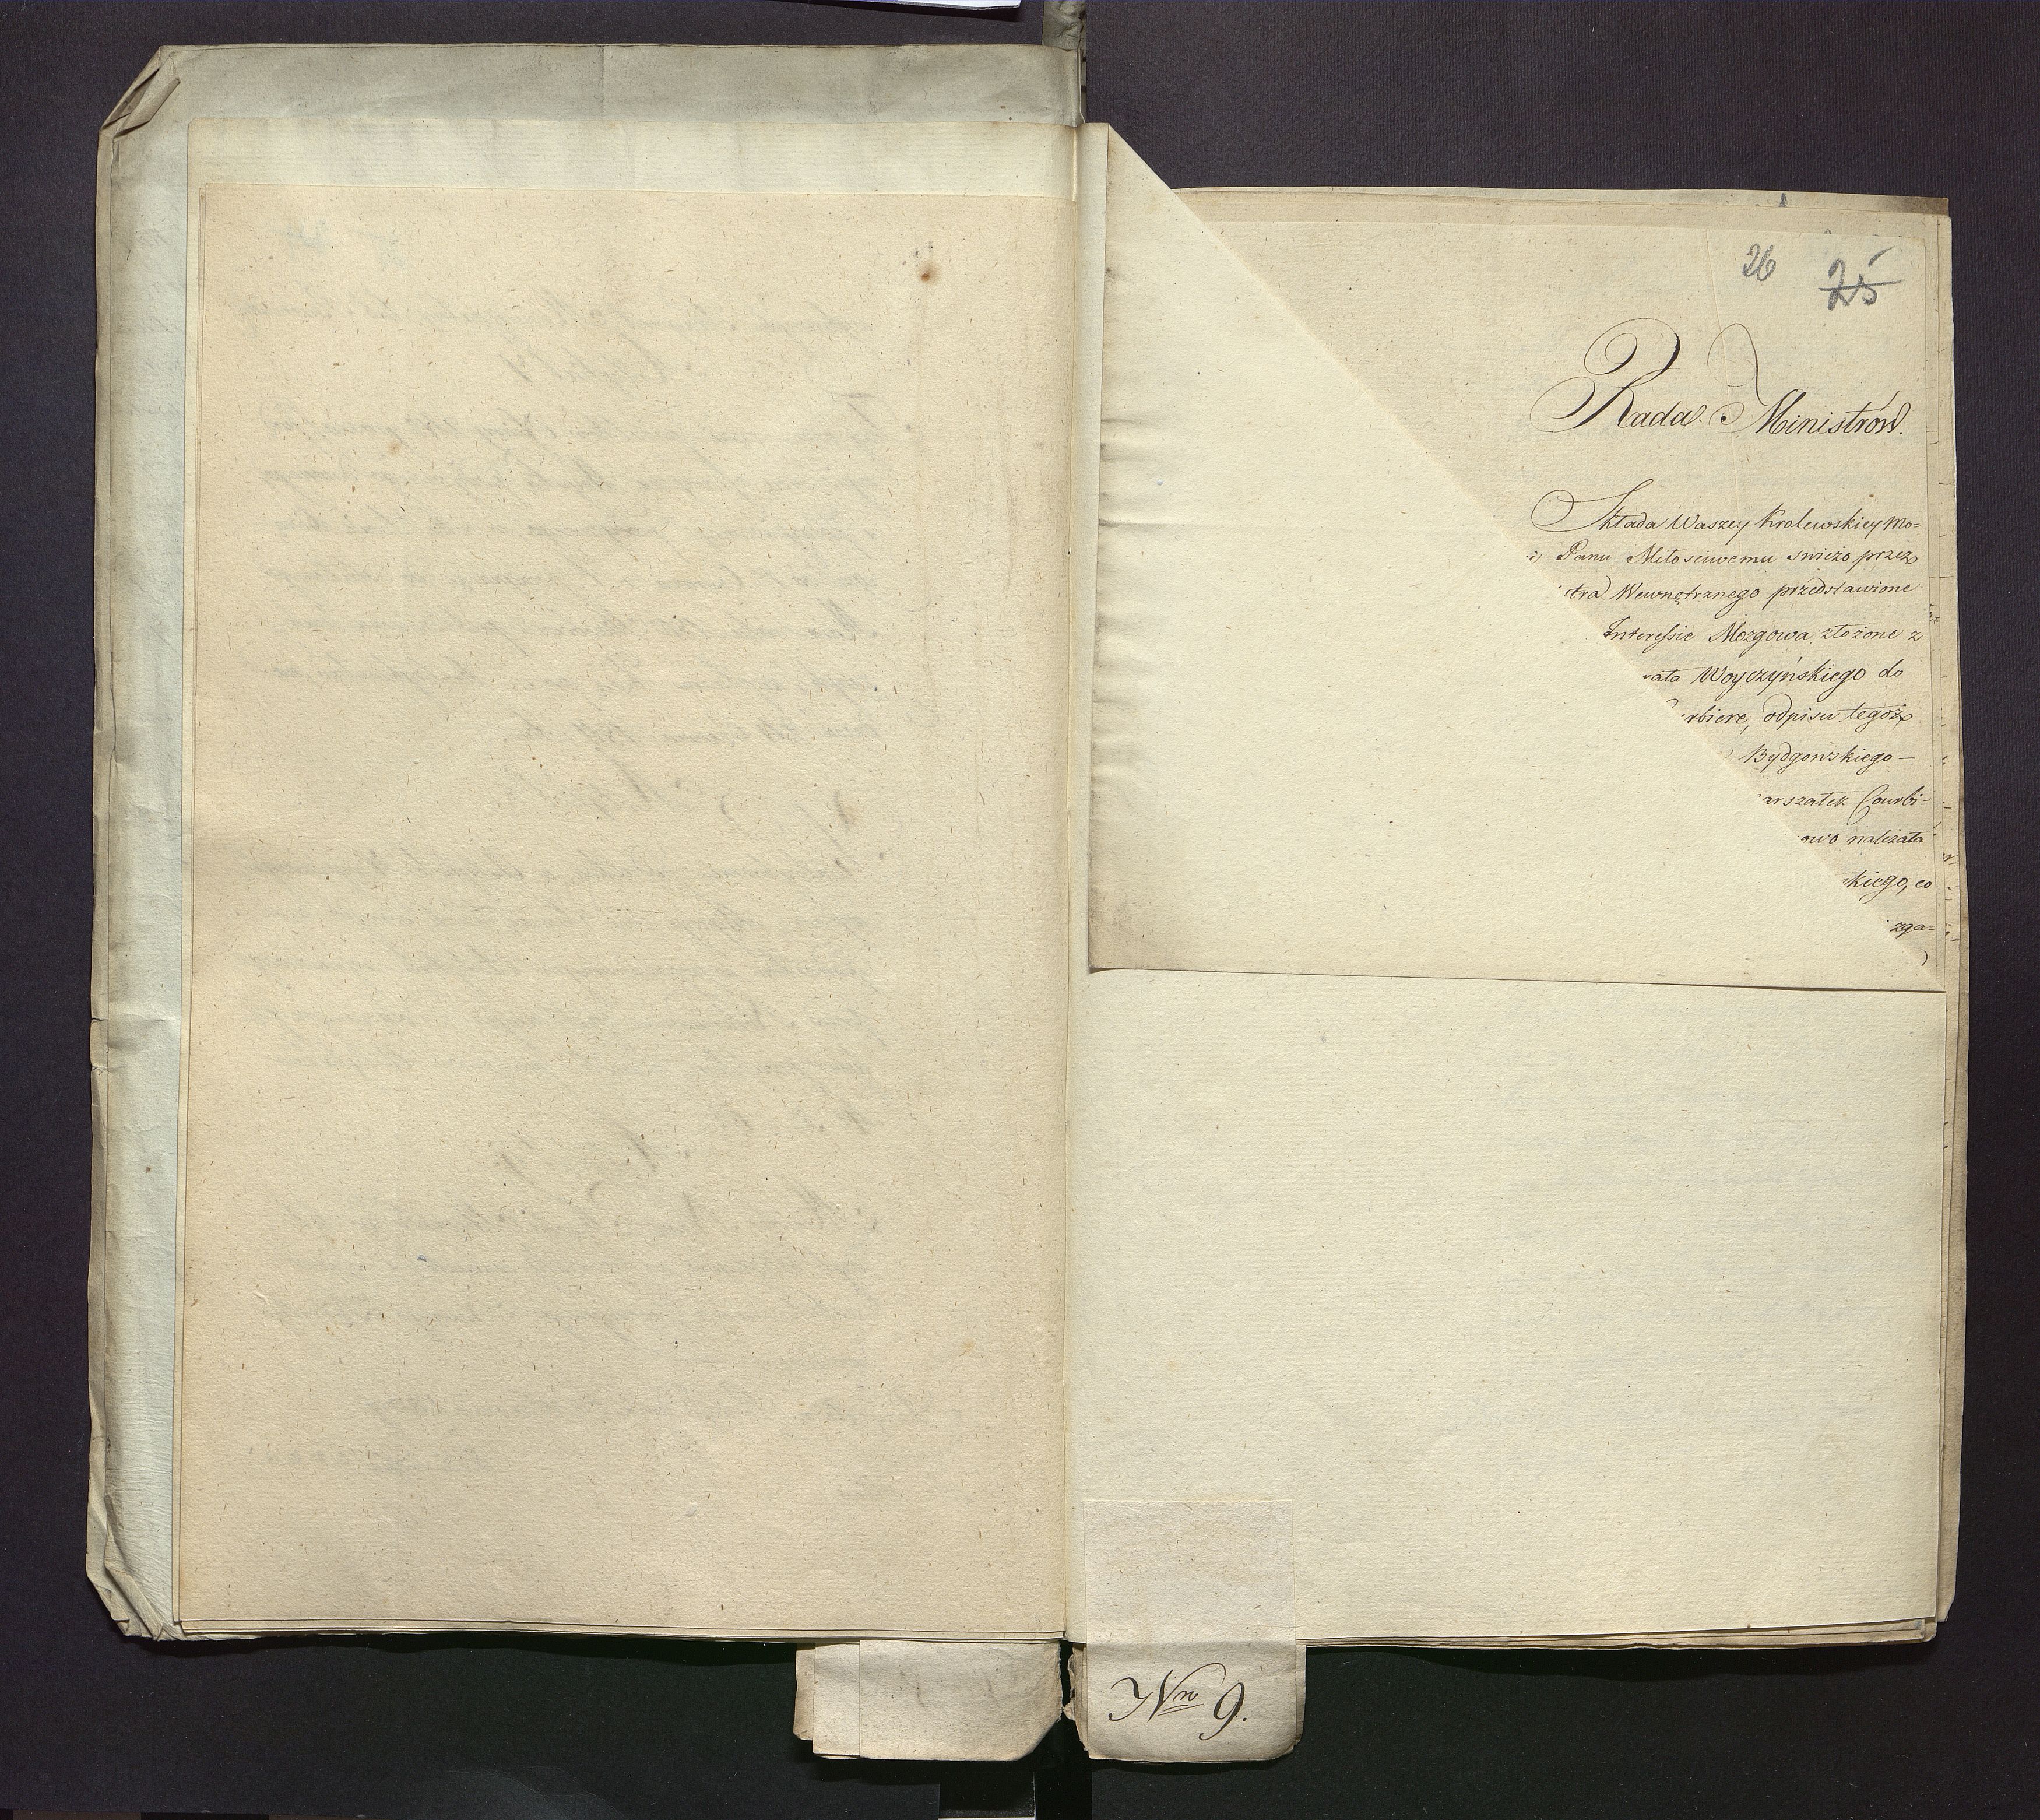 26 25
Rada Ministrów.
Składa Waszey Krolewskiey Mo=
Panu Miłosciwemu swieżo przez
stra Wewnętrznego przedstawione
Interessie Mozgowa, złożone z
rata Woyczyńskiego do
rbiere, odpisu tegoż
Bydgoskiego —
arszałek Courbi=
owo należała
skiego, co
zga=
Nro 9.